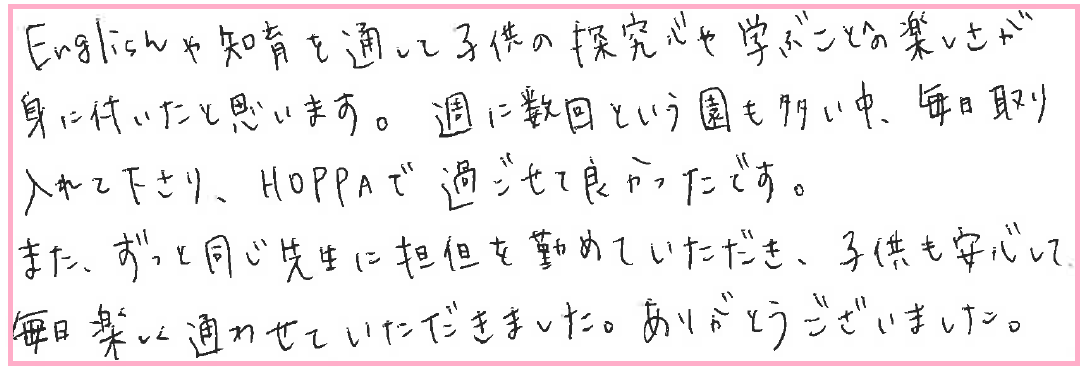 Englishや知育を通して子供の探究心や学ぶことへの楽しさが
身に付いたと思います。週に数回という園も多い中、毎日取り
入れて下さり、HOPPAで過ごせて良かったです。
また、ずっと同じ先生に担但を勤めていただき、子供も安心して
毎日楽しく通わせていただきました。ありがとうございました。